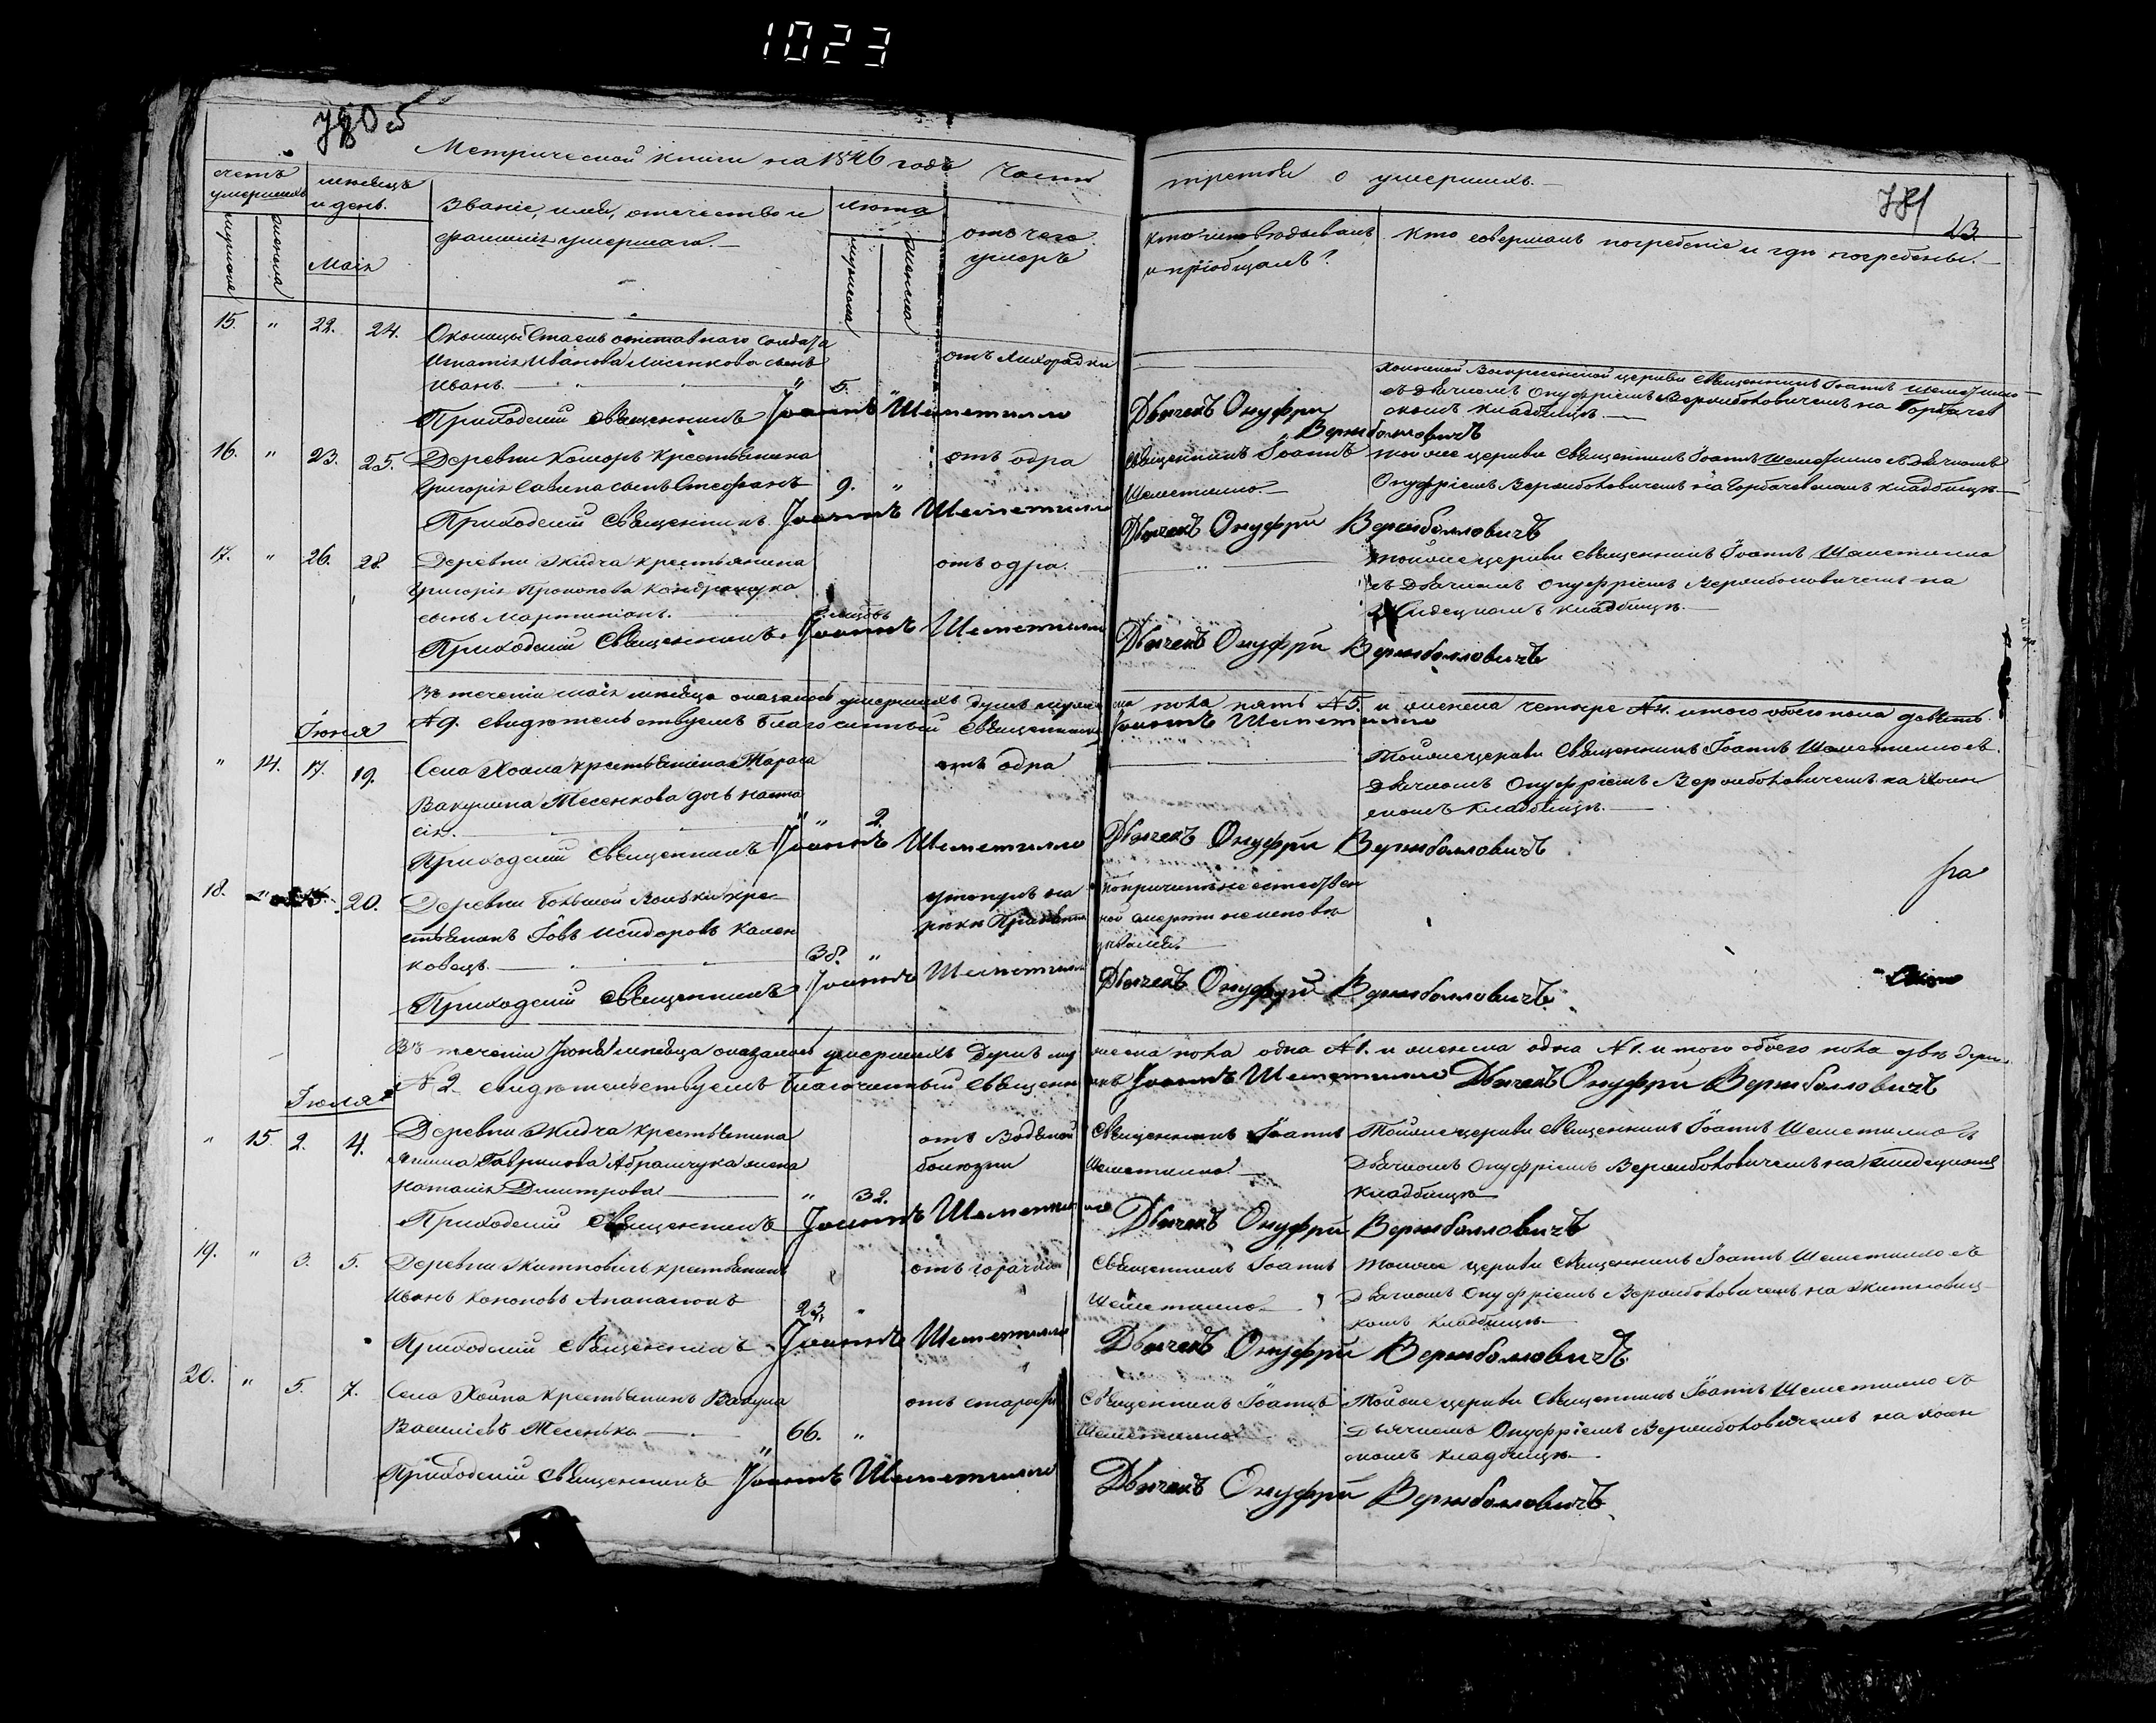 1023
Метрической книги на 1846 годъ Части третьей о умершихъ.
781
13
счетъ умершихъ
мѣсяцъ и день.
Званіе, имя, отечество и
фамилія умершаго.
лѣта
отъ чего
умеръ
кто исповѣдывалъ
и пріобщалъ?
Кто совершалъ погребеніе и гдѣ погребены.
мужеска
женска
Маія
мужеска
женска
15. " 22. 24.
отставнаго солдата
Игнатія Иванова Лисенкова сынъ
Иванъ. 5. "
отъ лихорадки
Хоинской Воскресенской церкви Священникъ Іоаннъ Шеметилло
съ Дьячкомъ Онуфріемъ Вержболовичемъ на Горбачев
скомъ кладбищѣ.
Приходскій Священникъ Іоаннъ Шеметилло
Дьячекъ Онуфрій
Вержболловичъ
16. " 23. 25. Деревни Коморъ крестьянина
Григорія Савина сынъ Стефанъ 9. "
отъ одра
Священникъ Іоаннъ
Шеметилло.
той же церкви Священникъ Іоаннъ Шеметилло съ Дьячкомъ
Онуфріемъ Вержболовичемъ на Горбачевскомъ кладбищѣ.
Приходскій Священникъ Іоаннъ Шеметилло
Дьячекъ Онуфрій Вержболловичъ
17. " 26. 28. Деревни Жидча крестьянина
Григорія Прокопова Кондрашука
сынъ Мартиніанъ.
отъ одра.
той же церкви Священникъ Іоаннъ Шеметилло
съ Дьячкомъ Онуфріемъ Вержболовичемъ на
Жидецкомъ кладбищѣ.
Приходскій Священникъ Іоаннъ Шеметилло
Дьячекъ Онуфрій Вержболловичъ
Въ теченіи маія мѣсяца оказалось умершихъ душъ мужеска пола пять №5. и женска четыре №4. итого обоего пола девять
№9. свидѣтельствуемъ Благочинный Священникъ Іоаннъ Шеметилло
Іюня
" 14. 17. 19. Села Хойна крестьянина Тараса
Вакулина Тесенкова дочь Наста
сія. " 2.
отъ одра
Той же церкви Священникъ Іоаннъ Шеметилло съ
Дьячкомъ Онуфріемъ Вержболовичемъ на Хоин
скомъ кладбищѣ.
Приходскій Священникъ Іоаннъ Шеметилло
Дьячекъ Онуфрій Вержболловичъ
18. " 20. Деревни Большой Вольки кре
стьянинъ Іовъ Исидоровъ Колен
ковецъ. 38. "
утонулъ на
рѣкѣ
по причинѣ неестествен
ной смерти не исповѣ
дывалъ.
Приходскій Священникъ Іоаннъ Шеметилло
Дьячекъ Онуфрій Вержболловичъ.
Въ теченіи Іюня мѣсяца оказалось умершихъ душъ мужеска пола одна №1. и женска одна №1. итого обоего пола двѣ души
№2. свидѣтельствуемъ Благочинный Священникъ Іоаннъ Шеметилло Дьячекъ Онуфрій Вержболловичъ
Іюля
" 15. 2. 4. Деревни Жидча крестьянина
Якима Гаврилова Абрамчука жена
Наталія Дмитрова " 32.
отъ Водяной
болѣзни
Священникъ Іоаннъ
Шеметилло
Той же церкви Священникъ Іоаннъ Шеметилло съ
Дьячкомъ Онуфріемъ Вержболовичемъ на Жидецкомъ
кладбищѣ
Приходскій Священникъ Іоаннъ Шеметилло
Дьячекъ Онуфрій Вержболловичъ
19. " 3. 5. Деревни Житновичъ крестьянинъ
Иванъ Кононовъ Апанасюкъ 23. "
отъ горячки
Священникъ Іоаннъ
Шеметилло
той же церкви Священникъ Іоаннъ Шеметилло съ
Дьячкомъ Онуфріемъ Вержболовичемъ на Житновиц
комъ кладбищѣ
Приходскій Священникъ Іоаннъ Шеметилло
Дьячекъ Онуфрій Вержболловичъ.
20. " 5. 7. Села Хойна крестьянинъ Вакула
Василіевъ Тесенко 66. "
отъ старости
Священникъ Іоаннъ
Шеметилло
Той же церкви Священникъ Іоаннъ Шеметилло съ
Дьячкомъ Онуфріемъ Вержболовичемъ на Хоин
скомъ кладбищѣ.
Приходскій Священникъ Іоаннъ Шеметилло
Дьячекъ Онуфрій Вержболловичъ.